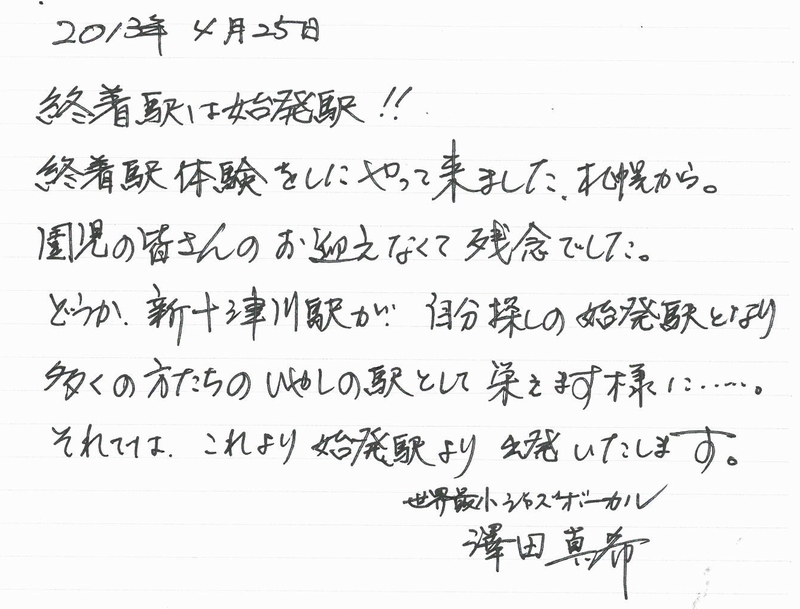 2013年 4月25日
終着駅は始発駅!!
終着駅体験をしにやって来ました、札幌から。
園児の皆さんのお迎えなくて残念でした。
どうか、新十津川駅が 自分探しの始発駅となり
多くの方たちのいやしの駅として栄えます様に……。
それでは、これより始発駅より出発いたします。
世界最小ジャズボーカル
澤田真希